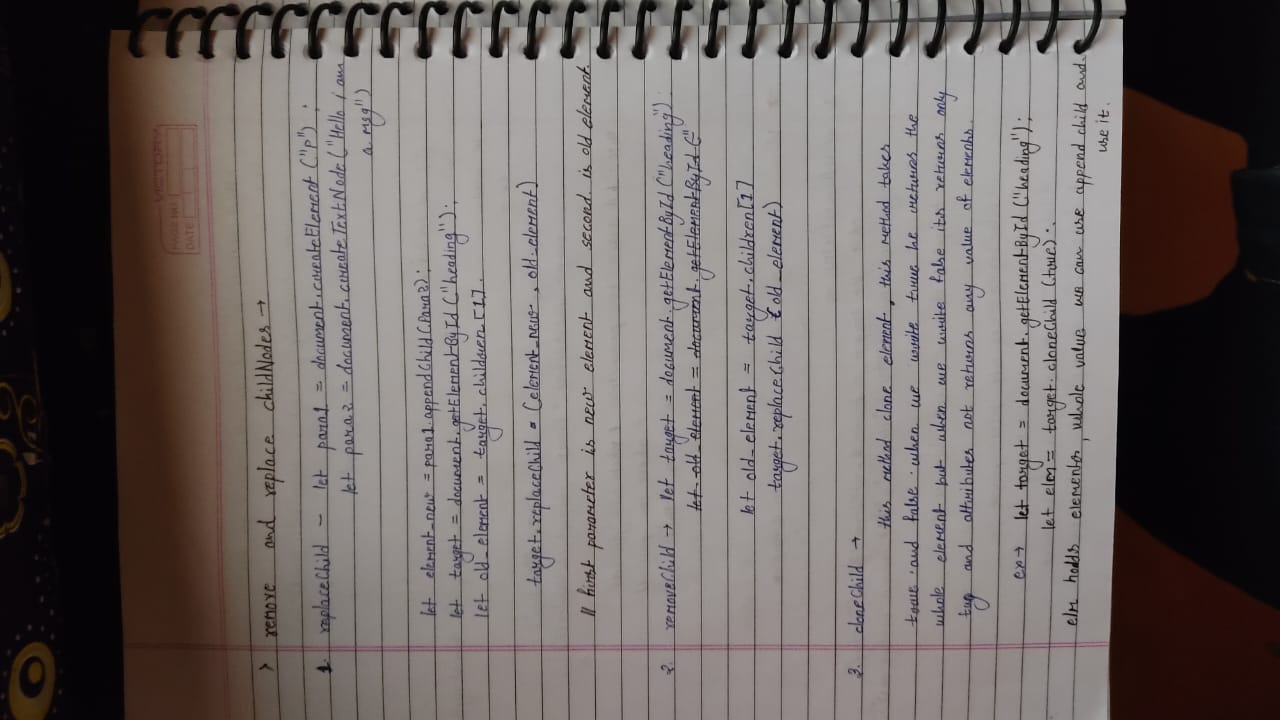 VICTORY
PAGE NO
DATE
> remove and replace childNodes →
1. replaceChild - let para1 = document.createElement ("P") ;
let para2 = document.createTextNode ("Hello i am
a msg")
let element_new = para1.appendChild (Para2);
let target = document.getElementById ("heading");
let old_element = target.children [1].
target.replaceChild = (element_new , old_element)
// first parameter is new element and second. is old element.
2. removeChild → let target = document.getElementById ("heading")
let old_element = document.getElementById ("
let old_element = target.children[1]
target.replaceChild (old_element)
3. cloneChild →
this method clone element, this method takes
true and false. when we write true he returns the
whole element but when we write false its returns only
tag and attributes not returns any value of elements.
ex → let target = document.getElementById ("heading");
let elm = target.cloneChild (true);
elm holds elements, whole value we can use append child and
use it.